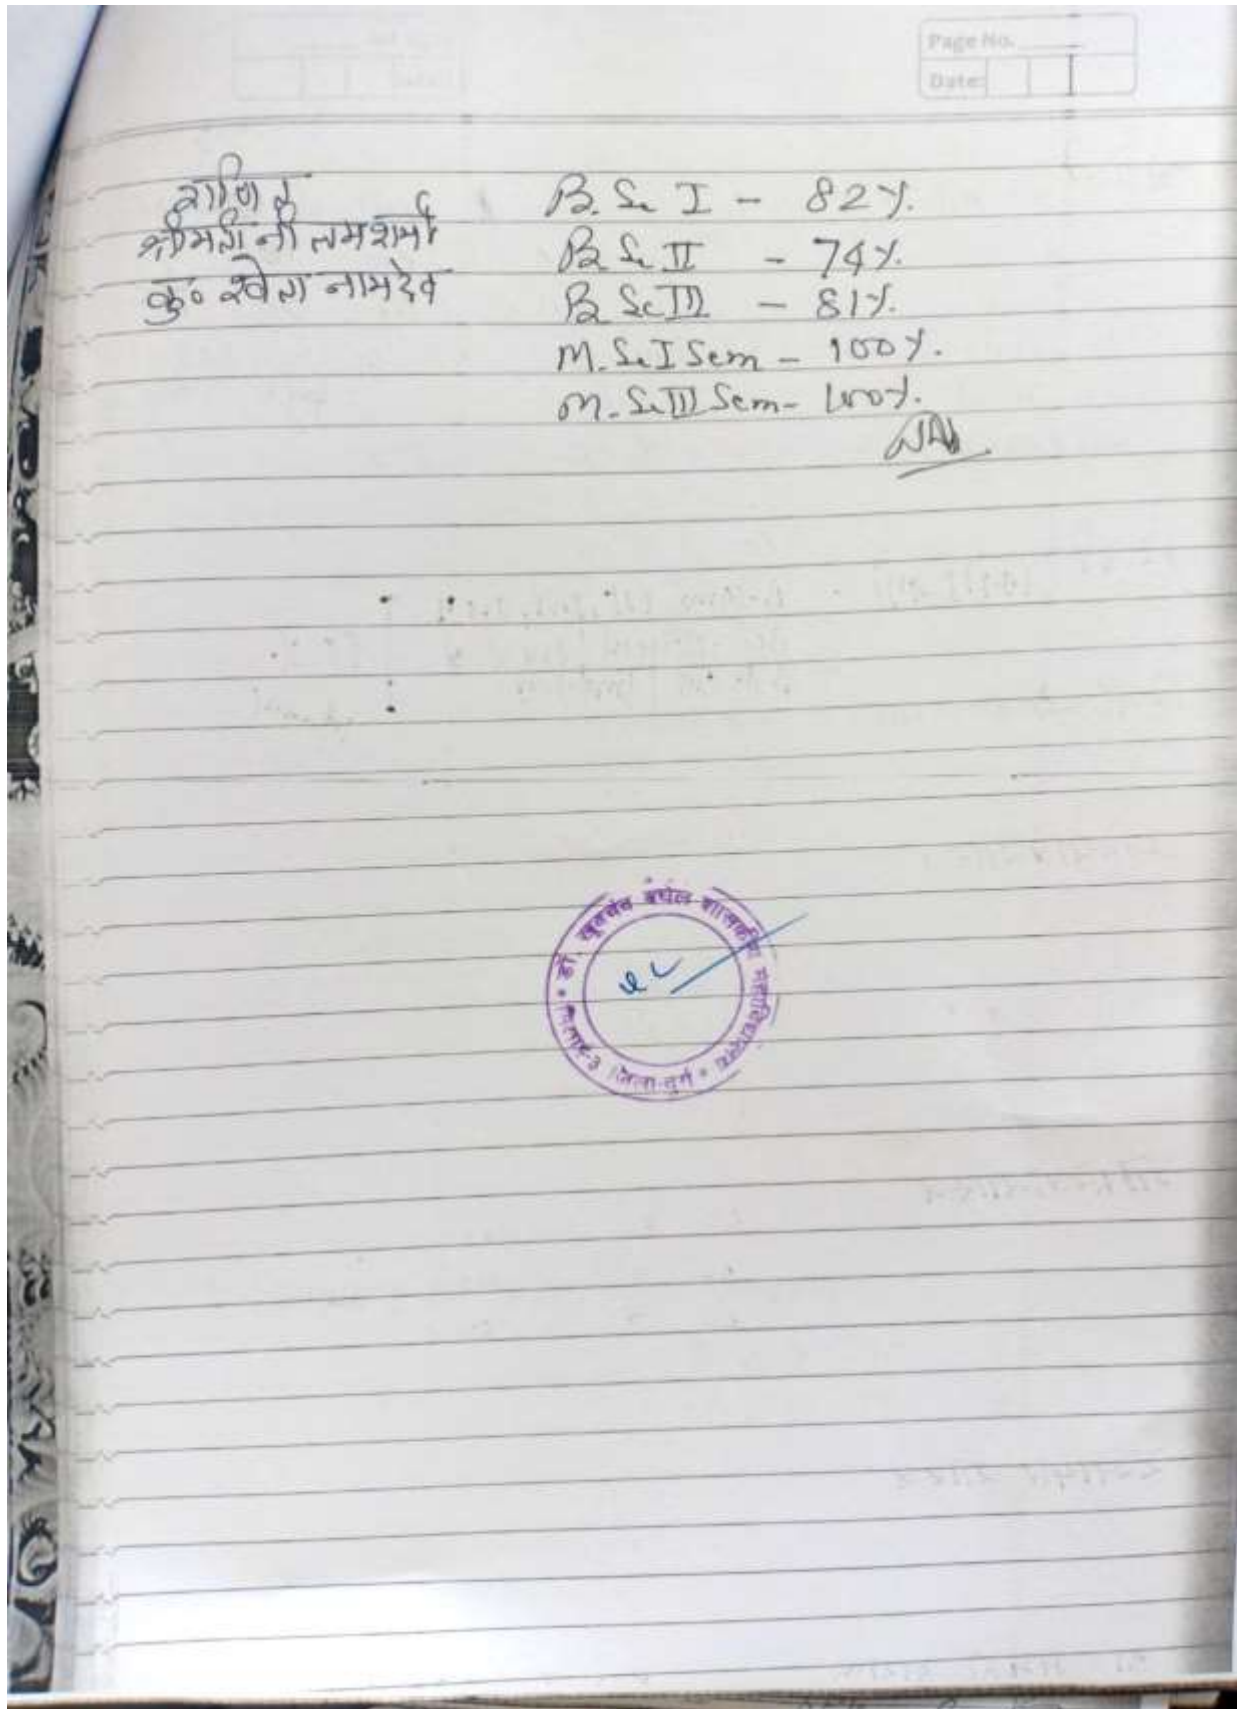 Page No.
Date:
गणित
श्रीमती नीलम शर्मा
कु० श्वेता नामदेव
B. Sc I - 82%.
B Sc II - 74%.
B Sc III - 81%.
M. Sc I Sem - 100%.
M. Sc III Sem - 100%.
डॉ. खूबचंद बघेल शासकीय महाविद्यालय
भिलाई-3 जिला-दुर्ग